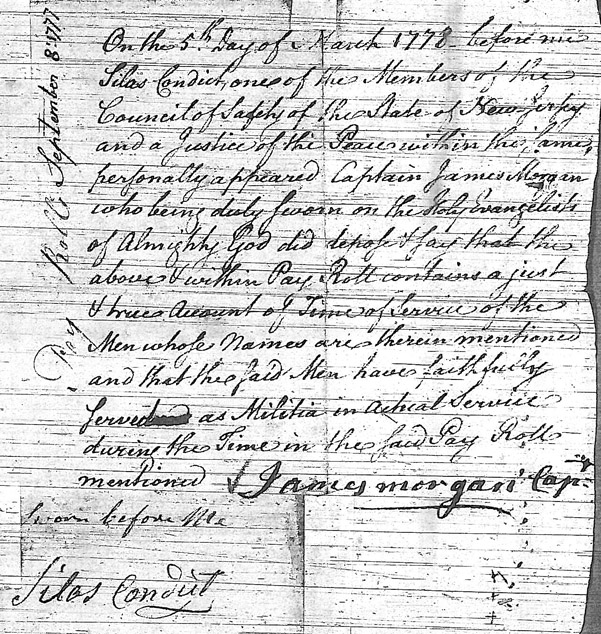 Pay Roll: September 8: 1777
On the 5th Day of March 1778 before me
Silas Condict, one of the Members of the
Council of Safety of the State of New Jersey
and a Justice of the Peace within the same,
personally appeared Captain James Morgan
who being duly sworn on the Holy Evangelists
of Almighty God did depose & say that the
above & within Pay Roll contains a just
& true Account of Time of Service of the
Men whose Names are therein mentioned
and that the said Men have faithfully
served as Militia in actual Service
during the Time in the said Pay Roll
mentioned James morgan Capt
Sworn before Me
Silas Condict